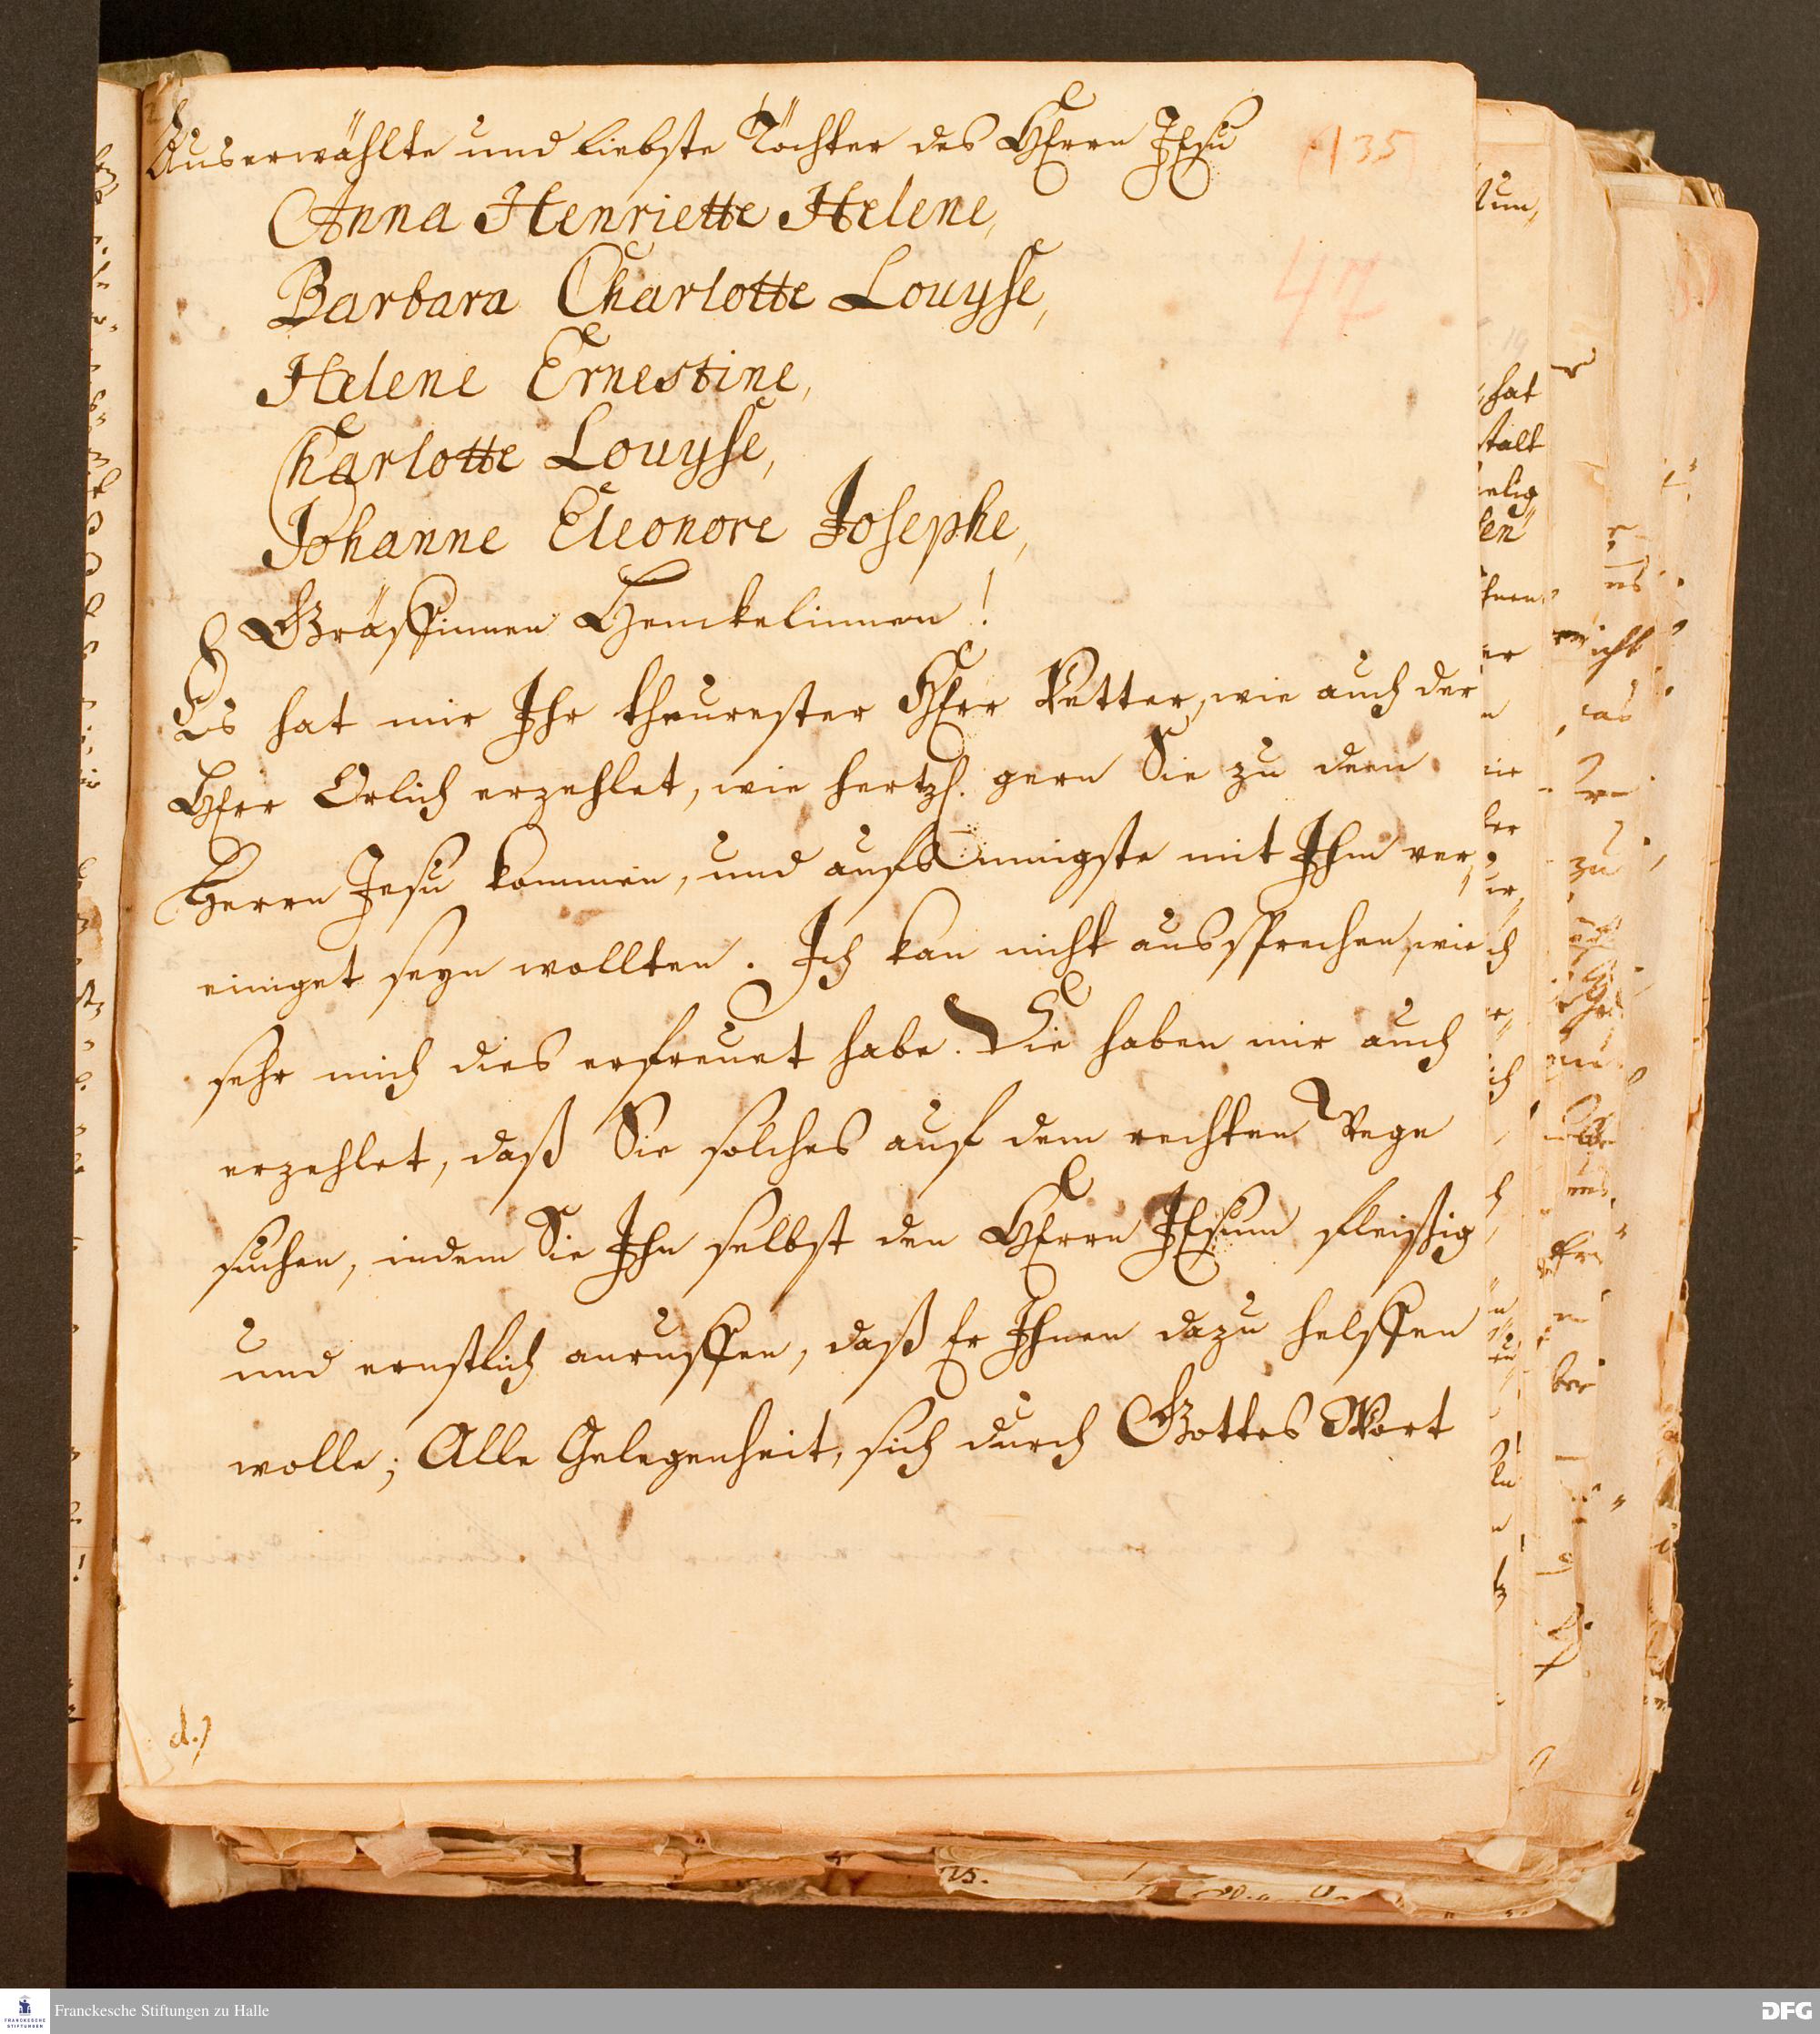 Auserwählte und liebste Töchter des HErrn JEsu
(135)
Anna Henriette Helene,
47
Barbara Charlotte Louyse,
Helene Ernestine,
Charlotte Louyse,
Johanne Eleonore Josephe,
Gräffinnen Henckelinnen!
Es hat mir Ihr theurester HErr Vetter, wie auch der
HErr Orlich erzehlet, wie hertzl. gern Sie zu dem
Herrn Jesu kommen, und aufs innigste mit Ihm ver,
einiget seyn wollten. Ich kan nicht aussprechen, wie
sehr mich dies erfreuet habe. Die haben mir auch
erzehlet, daß Sie solches auf dem rechten Wege
suchen, indem Sie Ihn selbst den HErrn JEsum fleißig
und ernstlich anruffen, daß Er Ihnen dazu helffen
wolle; Alle Gelegenheit, sich durch Gottes Wort
d.)
Franckesche Stiftungen zu Halle
FRANCKESCHE
STIFTUNGEN
DFG